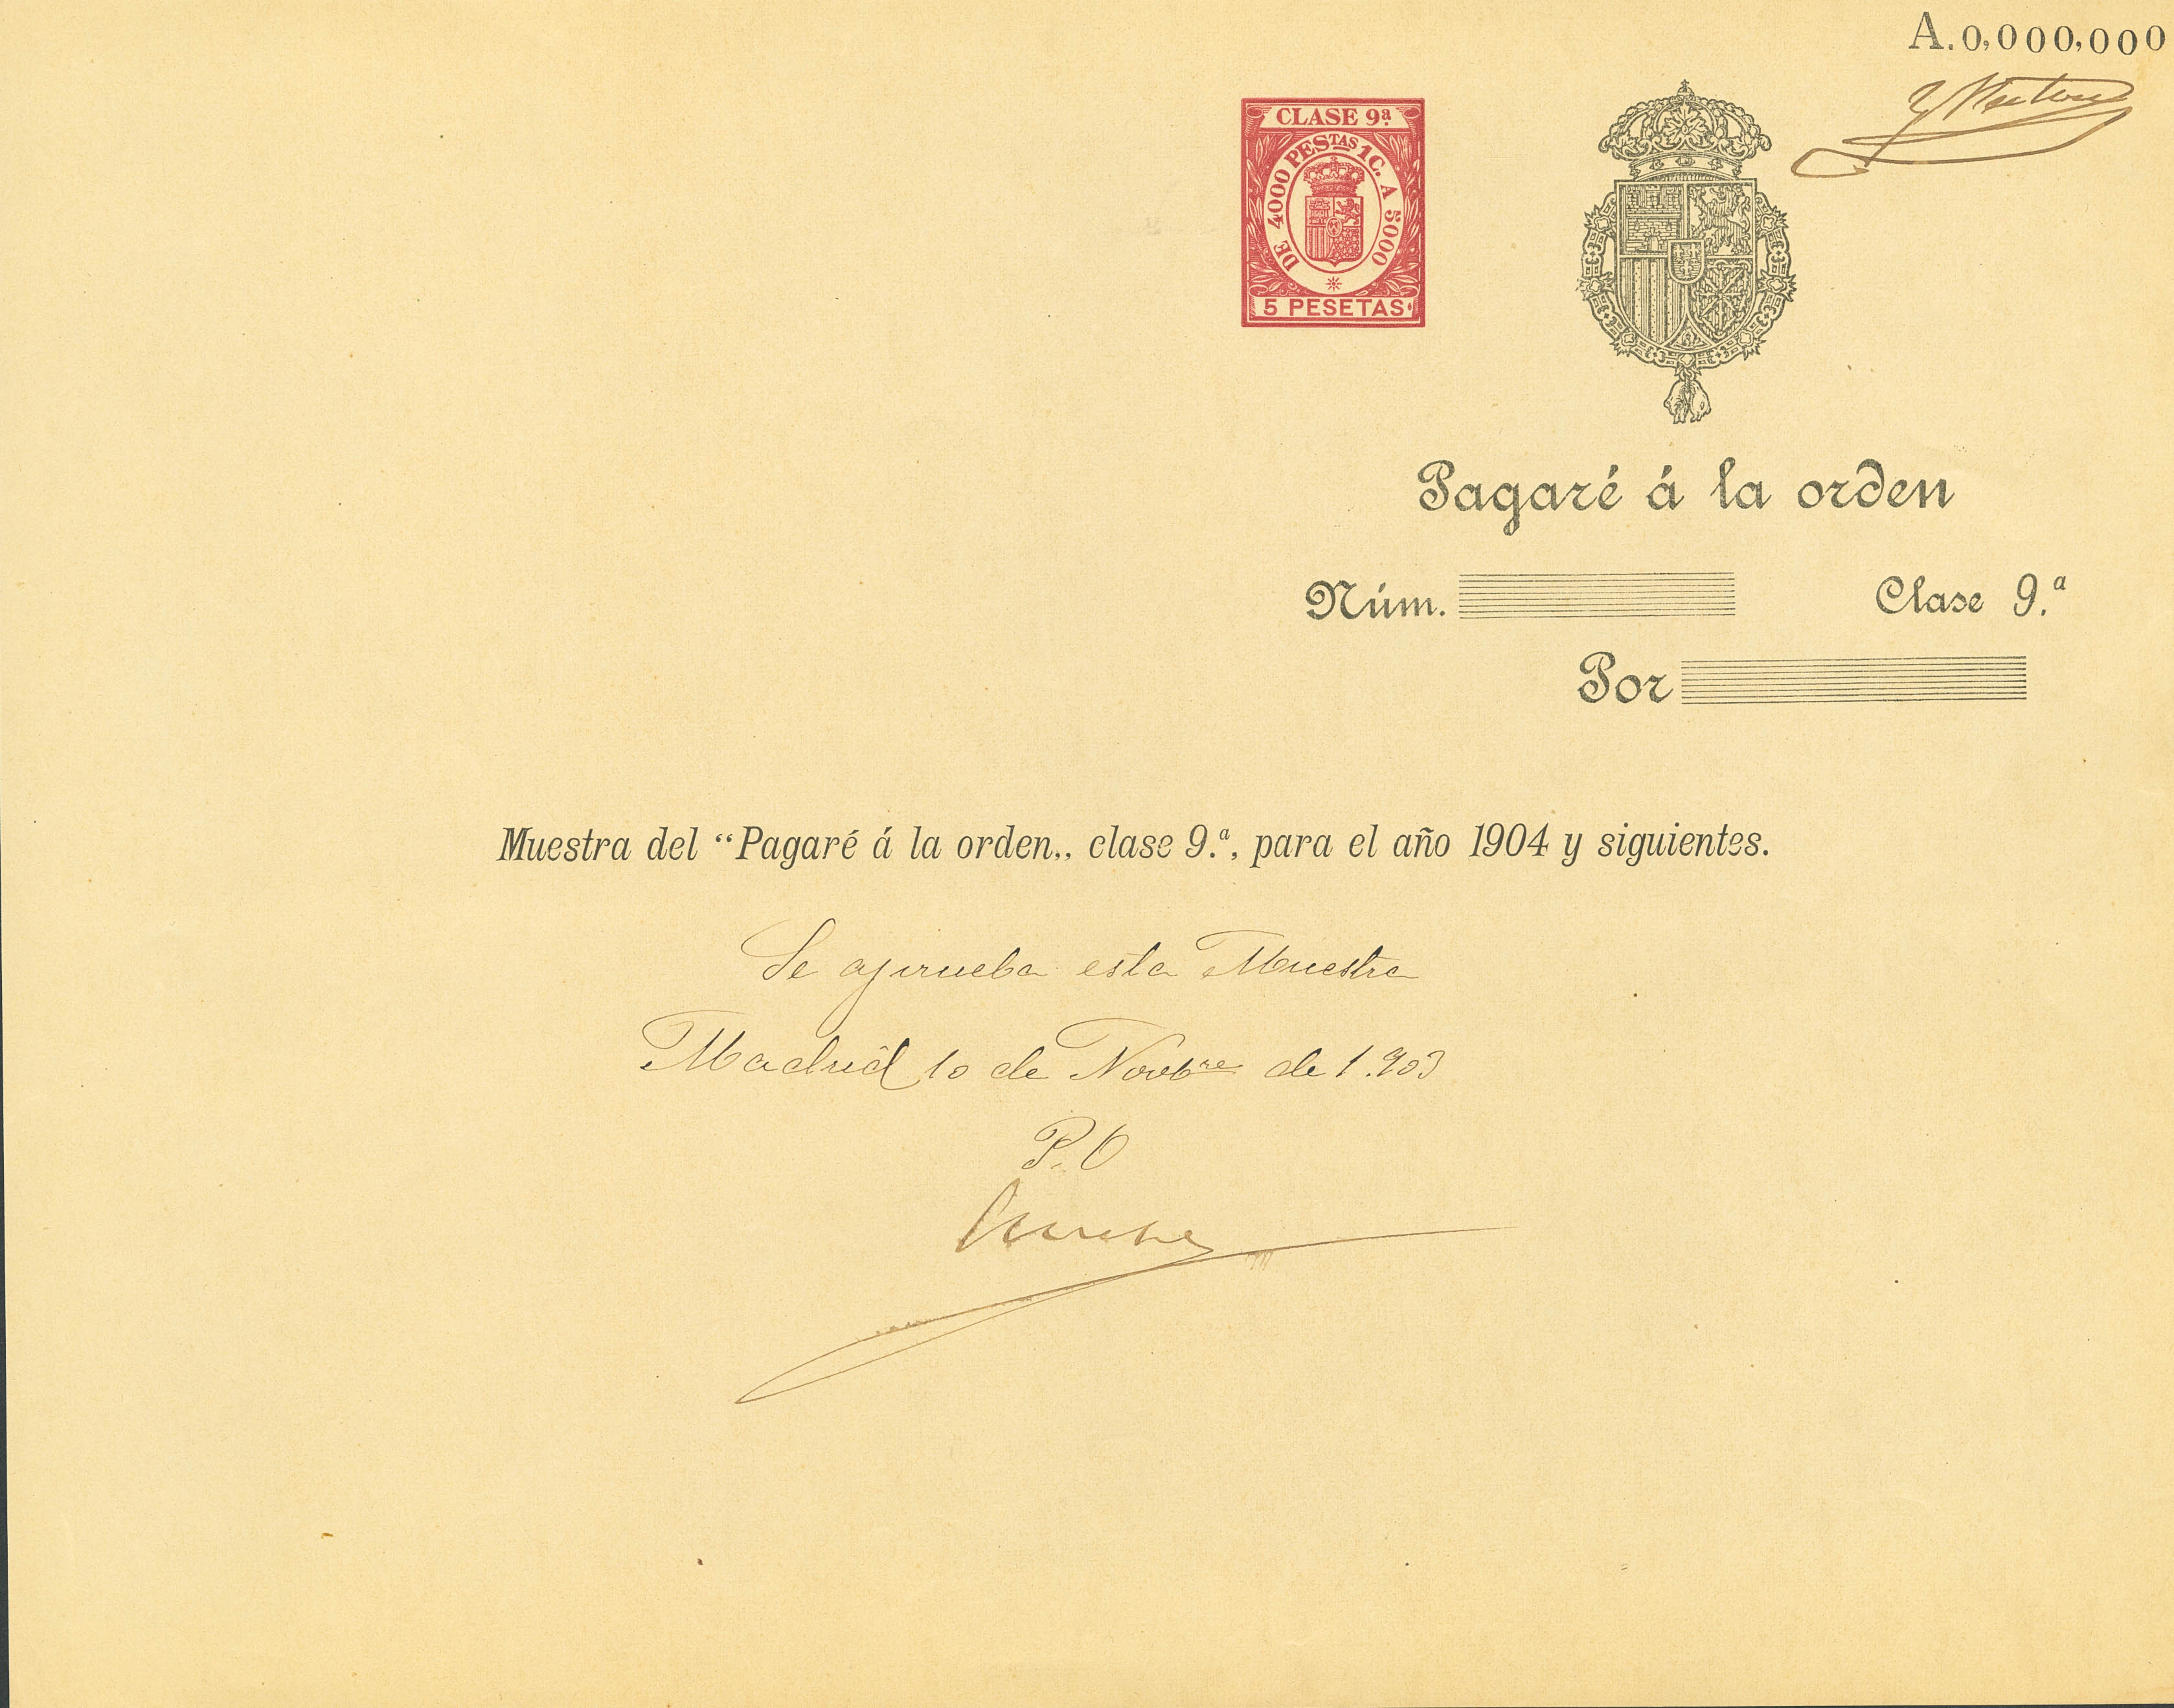 A.0,000,000
CLASE 9ª
DE 4000 PESTAS 1C. A 5000
5 PESETAS
Pagaré á la orden
Núm. Clase 9.ª
Por
Muestra del “Pagaré á la orden„ clase 9.ª, para el año 1904 y siguientes.
Se aprueba esta Muestra
Madrid 10 de Novbre de 1.903
P.O